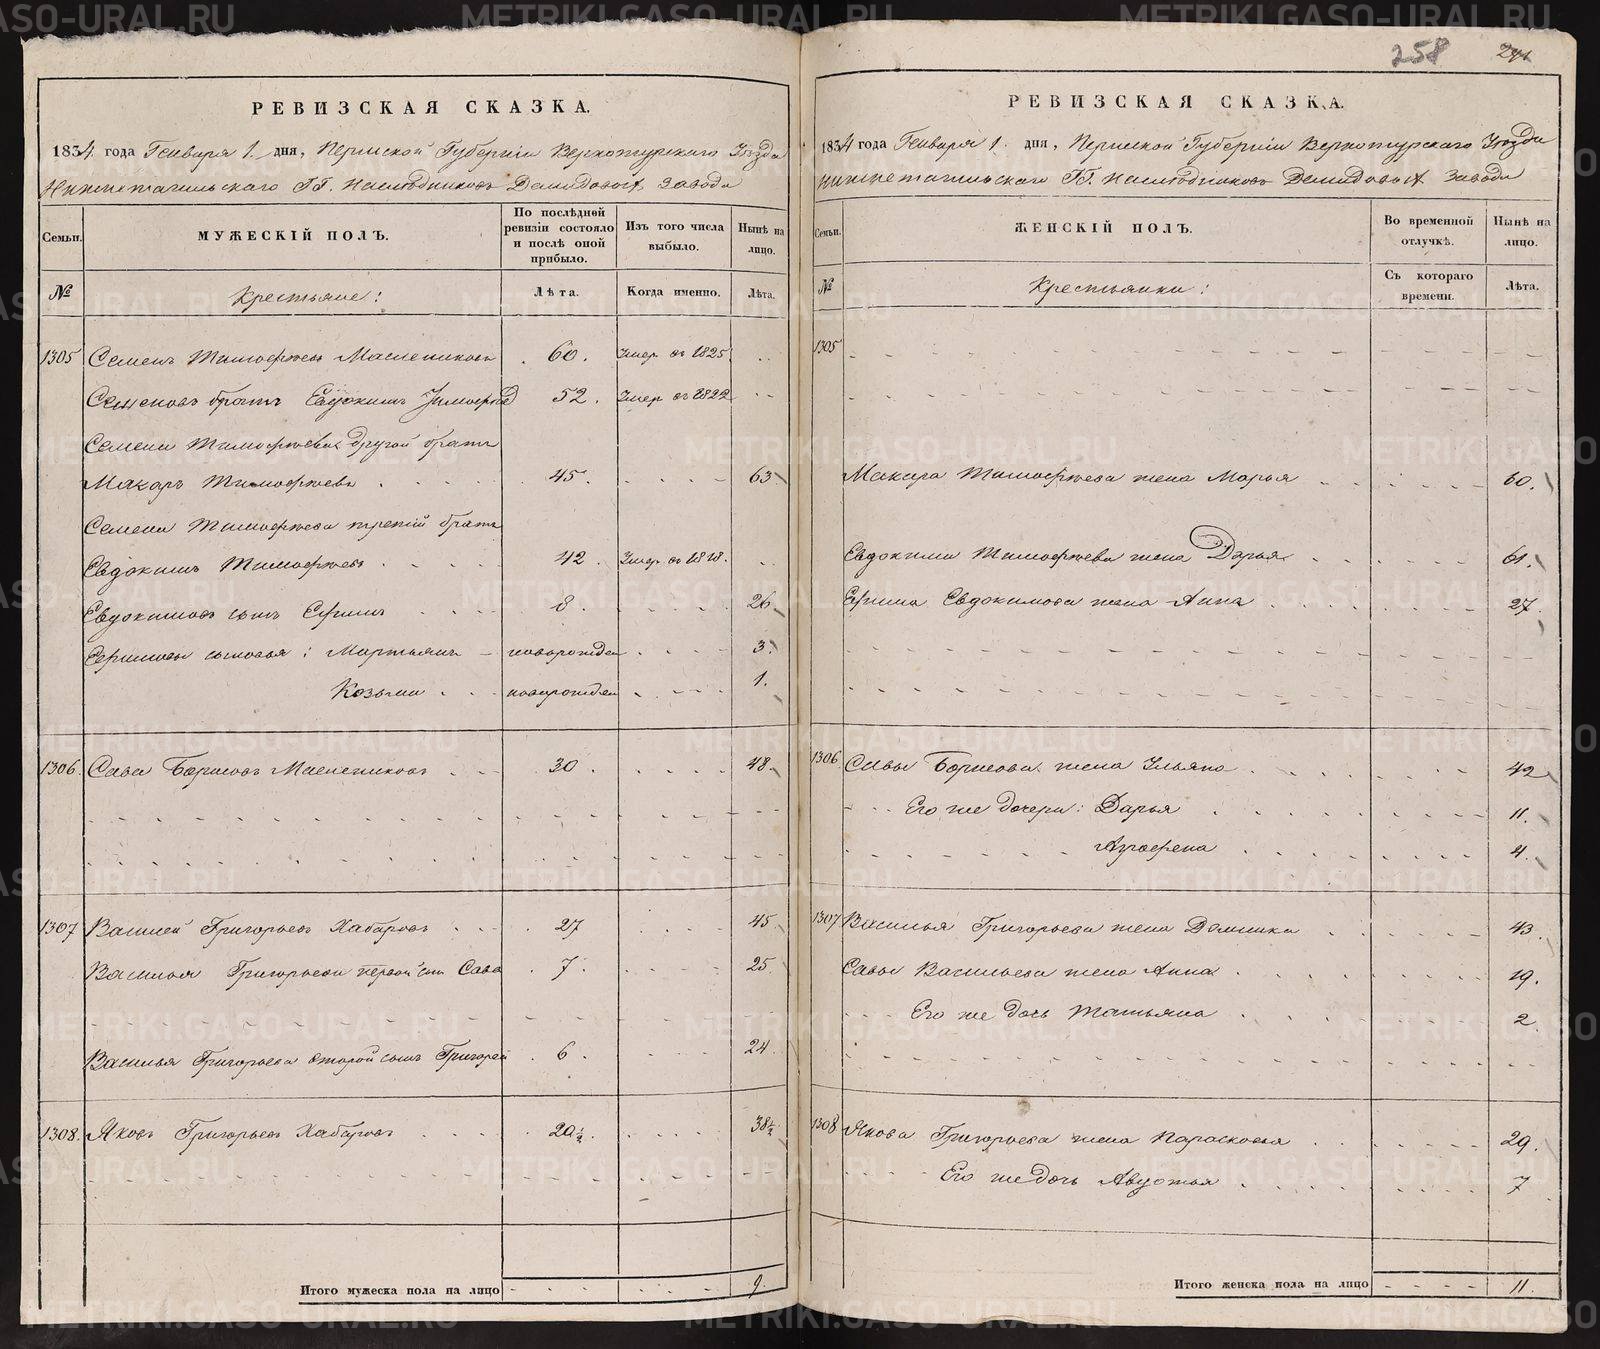 258
РЕВИЗСКАЯ СКАЗКА.
1834 года Генваря 1. дня, Пермской Губерніи Верхотурскаго Уѣзда
Нижнетагильскаго ГГ. Наслѣдниковъ Демидовыхъ завода
Семьи.
МУЖЕСКІЙ ПОЛЪ.
По послѣдней ревизіи состояло и послѣ оной прибыло.
Изъ того числа выбыло.
Нынѣ на лицо.
№
Крестьяне:
Лѣта.
Когда именно.
Лѣта.
1305 Семенъ Тимофѣевъ Маслениковъ 60. Умер въ 1825
Семеновъ братъ Евдокимъ 52. Умер въ 1822
Семена Тимофѣева другой братъ
Макаръ Тимофѣевъ 45. 63
Семена Тимофѣева третій братъ
Евдокимъ Тимофѣевъ 42. Умер въ 1818.
Евдокимовъ сынъ Ефимъ 8. 26
Ефимовы сыновья: Мартьянъ новорожден 3.
Козьма новорожден 1.
1306. Сава Борисовъ Маслениковъ 30. 48.
1307 Василей Григорьевъ Хабаровъ 27 45.
Василья Григорьева первой сын Сава 7. 25.
Василья Григорьева второй сынъ Григорей 6. 24
1308. Яковъ Григорьевъ Хабаровъ 20½. 38½
Итого мужеска пола на лицо 9.
РЕВИЗСКАЯ СКАЗКА.
1834 года Генваря 1. дня, Пермской Губерніи Верхотурскаго Уѣзда
Нижнетагильскаго ГГ. Наслѣдниковъ Демидовыхъ завода
Семьи.
ЖЕНСКІЙ ПОЛЪ.
Во временной отлучкѣ.
Нынѣ на лицо.
№
Крестьянки:
Съ котораго времени.
Лѣта.
1305
Макара Тимофѣева жена Марья 60.
Евдокима Тимофѣева жена Дарья 61.
Ефима Евдокимова жена Анна 27
1306 Савы Борисова жена Ульяна 42
Его же дочери: Дарья 11.
Агрофена 4.
1307 Василья Григорьева жена Домника 43.
Савы Васильева жена Анна 19.
Его же дочь Татьяна 2.
1308 Якова Григорьева жена Парасковья 29.
Его же дочь Авдотья 7
Итого женска пола на лицо 11.
METRIKI.GASO-URAL.RU